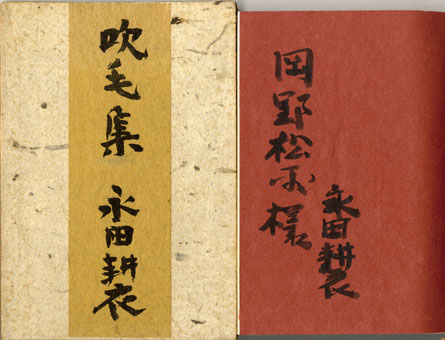 吹毛集
永田耕衣
岡野松様
永田耕衣